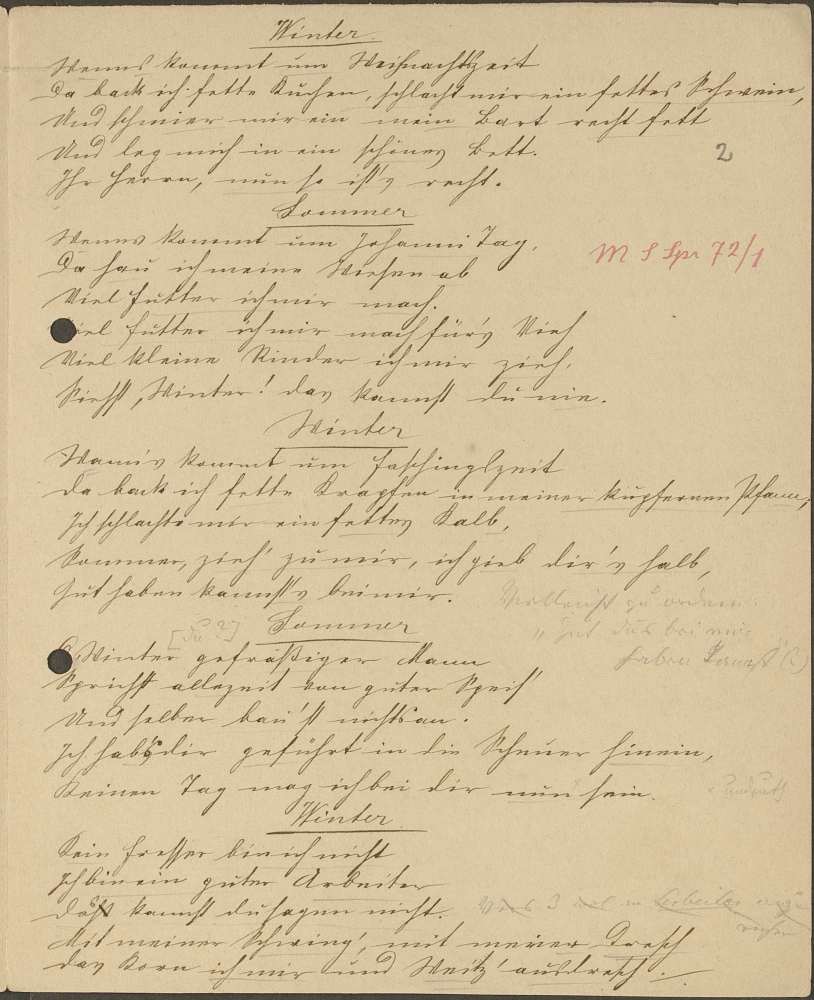 Winter.
Wenns kommt um Weihnachtszeit
Da back ich fette Kuchen, schlacht mir ein fettes Schwein,
Und schmier mir ein mein Bart recht fett
Und leg mich in ein schönes Bett.
2
Ihr Herrn, nun so ist's recht.
Sommer
Wenns kommt um Johanni Tag,
M S Spr 72/1
Da hau ich meine Wiesen ab
Viel Futter ich mir mach.
Viel Futter ich mir mach für's Vieh
Viel kleine Rinder ich mir zieh,
Siehst, Winter! das kannst du nie.
Winter
Wann's kommt um Faschingszeit
Da back ich fette Krapfen in meiner kupfernen Pfann,
Ich schlachte mir ein fettes Kalb,
Sommer, zieh' zu mir, ich gieb dir's halb,
Gut haben kannst's bei mir.
Vielleicht zu ordnen:
[du?]
Sommer
"Gut dus bei mir
haben kannst" (?)
O Winter gefräßiger Mann
Sprichst allezeit von guter Speis'
Und selber bau'st nichts an.
Ich hab's dir geführt in die Scheuer hinein,
Keinen Tag mag ich bei dir nun sein.
Winter.
Kein Fresser bin ich nicht
Ich bin ein guter Arbeiter
Das kannst du sagen nicht.
Mit meiner Schwing', mit meiner Dresch
Das Korn ich mir und Weitz' ausdresch.